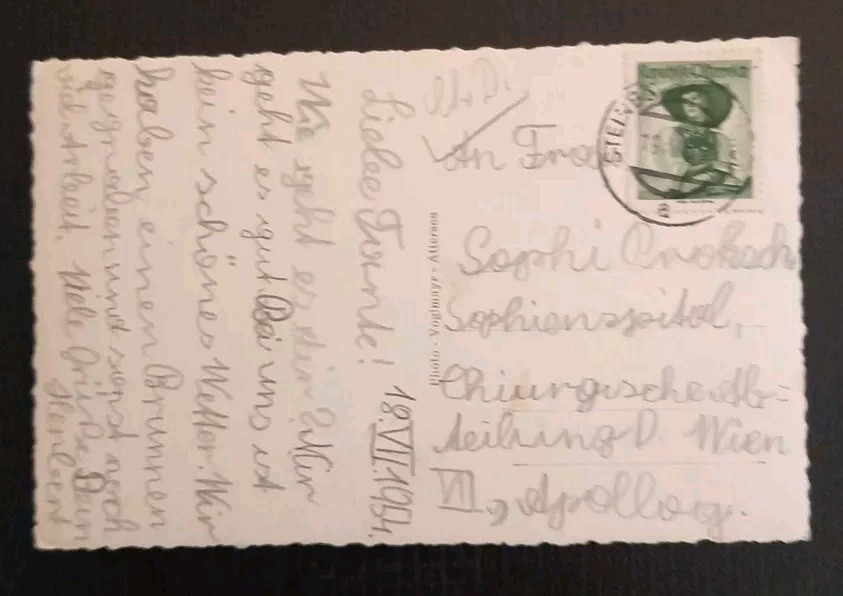 18.VII.1954.
Liebe Tante!
Wie geht es dir? Mir
geht es gut. Bei uns ist
kein schönes Wetter. Wir
haben einen Brunnen
gegraben und sonst noch
viel Arbeit. Viele Grüße Dein
An Frau
Sophi
Sophienspital,
Chiurgische Ab=
teilung D. Wien
VII, Apollog.
Photo - Voglmayr - Attersee
a